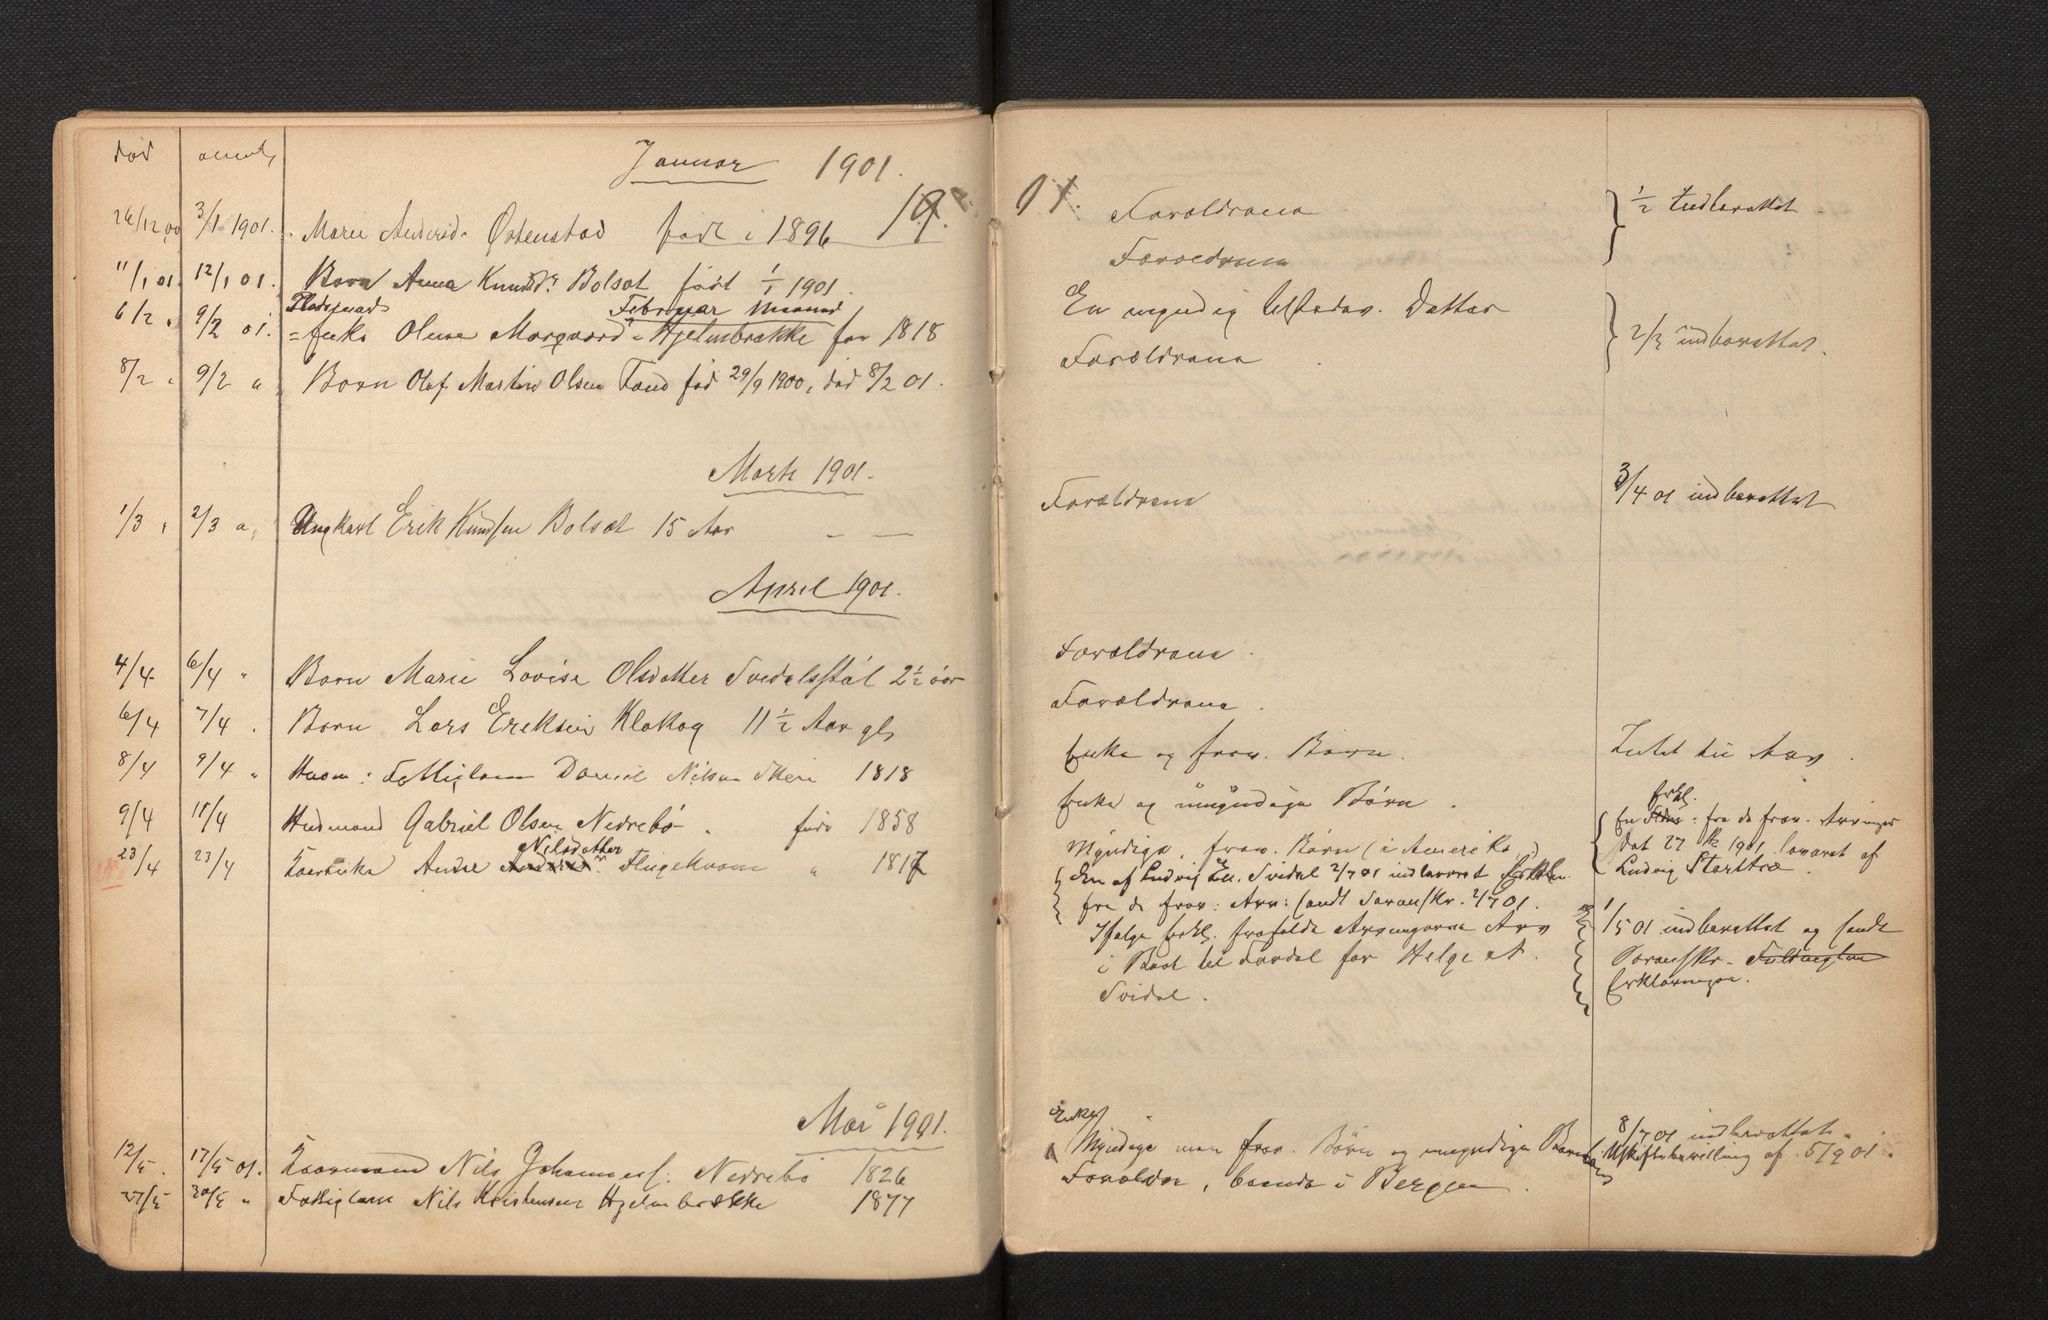 død anmeldt
Januar 1901.
26/12 00 3/1 1901. Marie Andersd. Østenstad født i 1896
11/1 01. 12/1 01. Barn Anna Knudsd. Bolsæt født 1/1 1901.
Februar Maaned
6/2 " 9/2 01. Enke Oline Margaard Hjelmbrække før 1818
8/2 " 9/2 " Barn Olaf Martin Olsen Tand fød 29/9 1900, død 8/2 01.
Marts 1901.
1/3 " 2/3 " Ungkarl Erik Knudsen Bolsæt 15 Aar
April 1901.
4/4 6/4 " Barn Marie Lovise Olsdatter Svidalsstøl 2½ aar
6/4 7/4 " Barn Lars Eriksen Klakeg 11½ Aar gl.
8/4 9/4 " Husm: Fattiglem Daniel Nilsen 1818
9/4 15/4 Husmand Gabriel Olsen Nedrebø født 1858
Nilsdatter
23/4 23/4 Kaarenke Andrea Flugekvam " 1817
Mai 1901.
12/5. 17/5 01. Kaarmand Nils Johanness: Nedrebø 1826
27/5 30/5 " Fattiglem Nils Kristensen Hjelmbrække 1877
Forældrene
Forældrene
1/2 Indberettet
En myndig Datter
Forældrene
2/3 indberettet.
Forældrene
3/4 01 indberettet
Forældrene.
Forældrene.
Enke og frav. Børn. Intet til Arv.
Enke og umyndige Børn.
Myndige, frav. Børn (i Amerika)
En af Ludvig Svidal 2/7 01 indleveret Erklær.
fra de frav: Arv: sendt Sorenskr. 2/7 01.
Ifølge Erkl. frafalde Arvingerne Arv
i Boet til Fordel for Helge A.
Svidal.
Erkl.
En fra de frav. Arvinger
dat 27 1901 leveret af
Ludvig
1/5 01 indberettet og sendt
Sorenskr. Fuldmagten
Erklæringen.
Enke
Myndige men frav. Børn og myndige Børnebørn
Forældre, boende i Bergen.
8/7 01 indberettet.
Uskiftebevilling af 5/9 01.